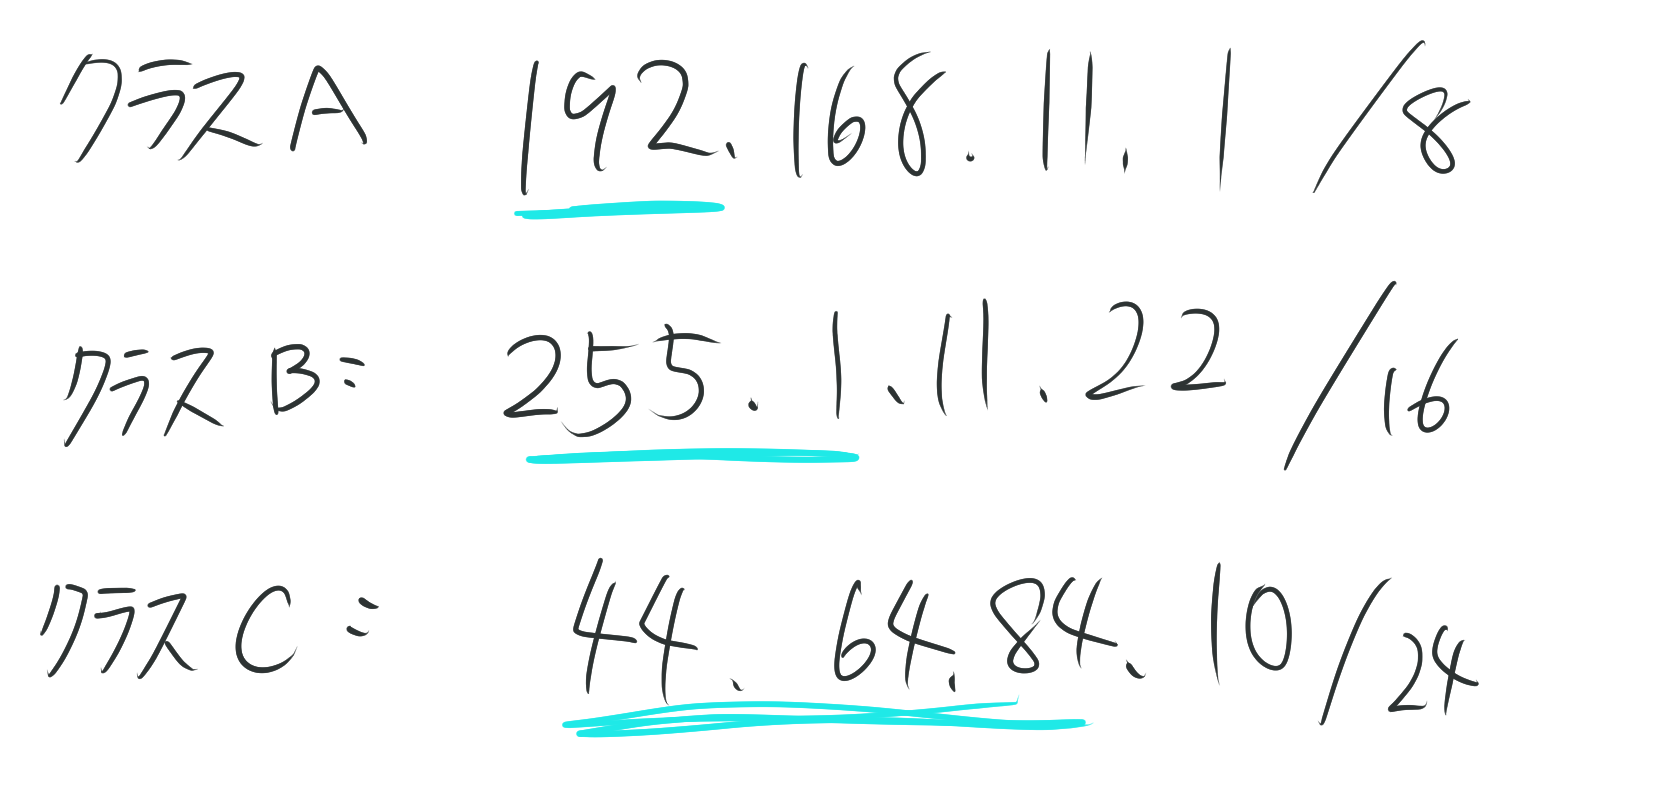 クラスA 192.168.11.1/8
クラスB: 255.1.11.22/16
クラスC: 44.64.84.10/24